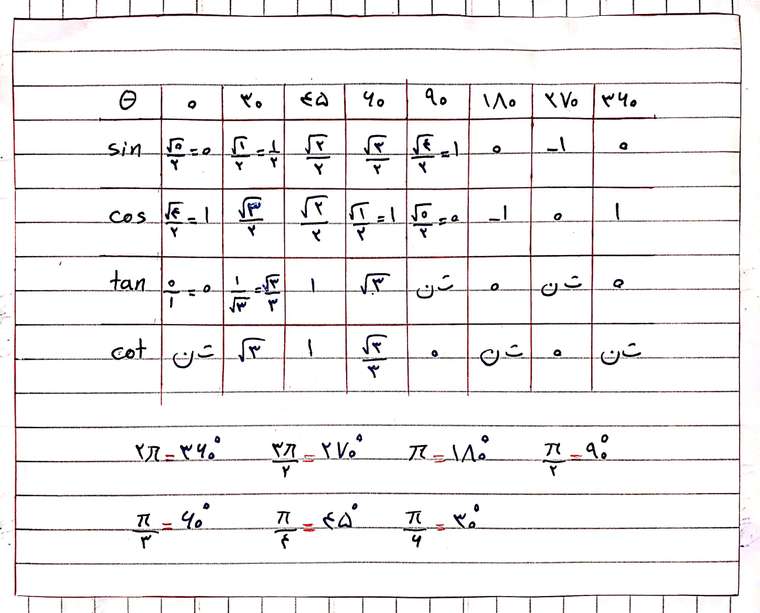 θ ۰ ۳۰ ۴۵ ۶۰ ۹۰ ۱۸۰ ۲۷۰ ۳۶۰
sin √۰/۲=۰ √۱/۲=۱/۲ √۲/۲ √۳/۲ √۴/۲=۱ ۰ -۱ ۰
cos √۴/۲=۱ √۳/۲ √۲/۲ √۱/۲=۱ √۰/۲=۰ -۱ ۰ ۱
tan ۰/۱=۰ ۱/√۳=√۳/۳ ۱ √۳ ت ن ۰ ت ن ۰
cot ت ن √۳ ۱ √۳/۳ ۰ ت ن ۰ ت ن
۲π=۳۶۰° ۳π/۲=۲۷۰° π=۱۸۰° π/۲=۹۰°
π/۳=۶۰° π/۴=۴۵° π/۶=۳۰°